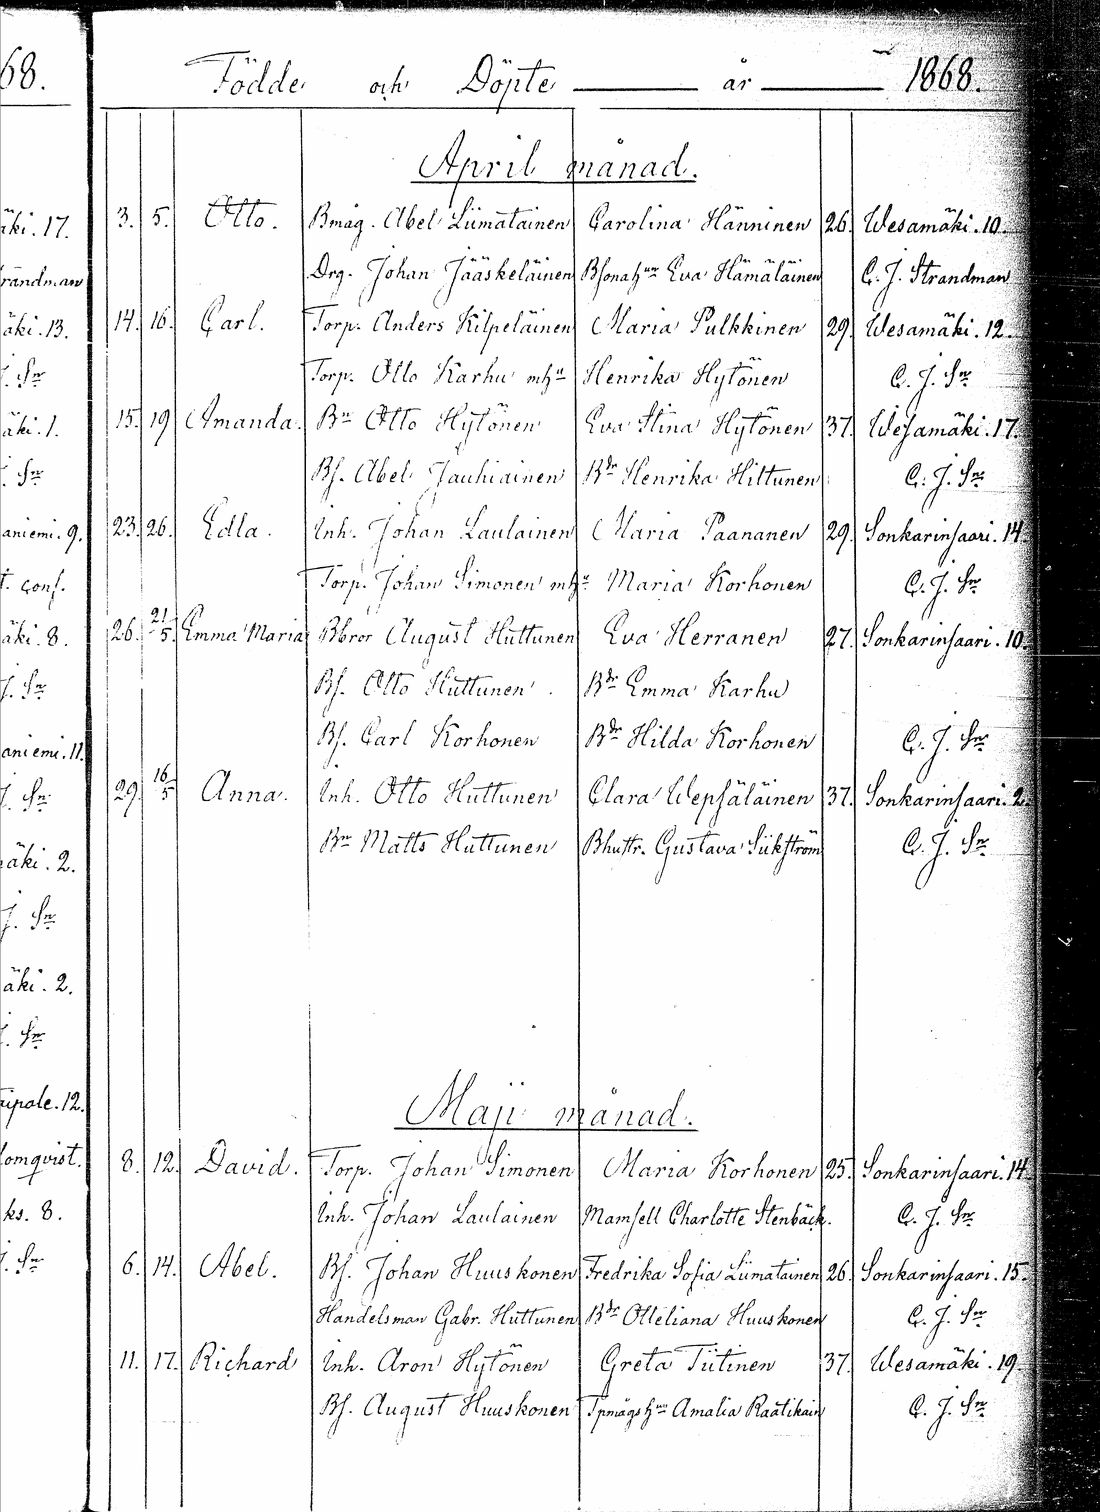 68.
Födde och Döpte år 1868.
April månad.
äki. 17. 3. 5. Otto. Bmåg. Abel Liimatainen Carolina Hänninen 26. Wesamäki. 10.
randman Drg. Johan Jääskeläinen Bsonah:un Eva Hämäläinen C. J. Strandman
äki. 13. 14. 16. Carl. Torp. Anders Kilpeläinen Maria Pulkkinen 29. Wesamäki. 12.
J. Sn Torp. Otto Karhu mh:u Henrika Hytönen C. J. Sn
äki. 1. 15. 19 Amanda. Bn Otto Hytönen Eva Stina Hytönen 37. Wesamäki. 17.
J. Sn Bs. Abel Jauhiainen Bdr Henrika Hiltunen C. J. Sn
aniemi. 9. 23. 26. Edla. Inh. Johan Laulainen Maria Paananen 29. Sonkarinsaari. 14.
t. conf. Torp. Johan Simonen mh:u Maria Korhonen C. J. Sn
äki. 8. 26. 21/5. Emma Maria Bbror August Huttunen Eva Herranen 27. Sonkarinsaari. 10.
J. Sn Bs. Otto Huttunen. Bdr Emma Karhu
aniemi. 11. Bs. Carl Korhonen Bdr Hilda Korhonen C. J. Sn
J. Sn 29. 16/5 Anna. Inh. Otto Huttunen Clara Wepsäläinen 37. Sonkarinsaari. 2.
äki. 2. Bn Matts Huttunen Bhustr. Gustava Siikström C. J. Sn
J. Sn
äki. 2.
J. Sn
Maji månad.
aipale. 12.
lomqvist. 8. 12. David. Torp. Johan Simonen Maria Korhonen 25. Sonkarinsaari. 14.
ks. 8. Inh. Johan Laulainen Mamsell Charlotte Stenbäck. C. J. Sn
J. Sn 6. 14. Abel. Bs. Johan Huuskonen Fredrika Sofia Liimatainen 26. Sonkarinsaari. 15.
Handelsman Gabr. Huttunen Bdr Otteliana Huuskonen C. J. Sn
11. 17. Richard Inh. Aron Hytönen Greta Tiitinen 37. Wesamäki. 19.
Bs. August Huuskonen Tpmågsh:un Amalia Raatikain C. J. Sn